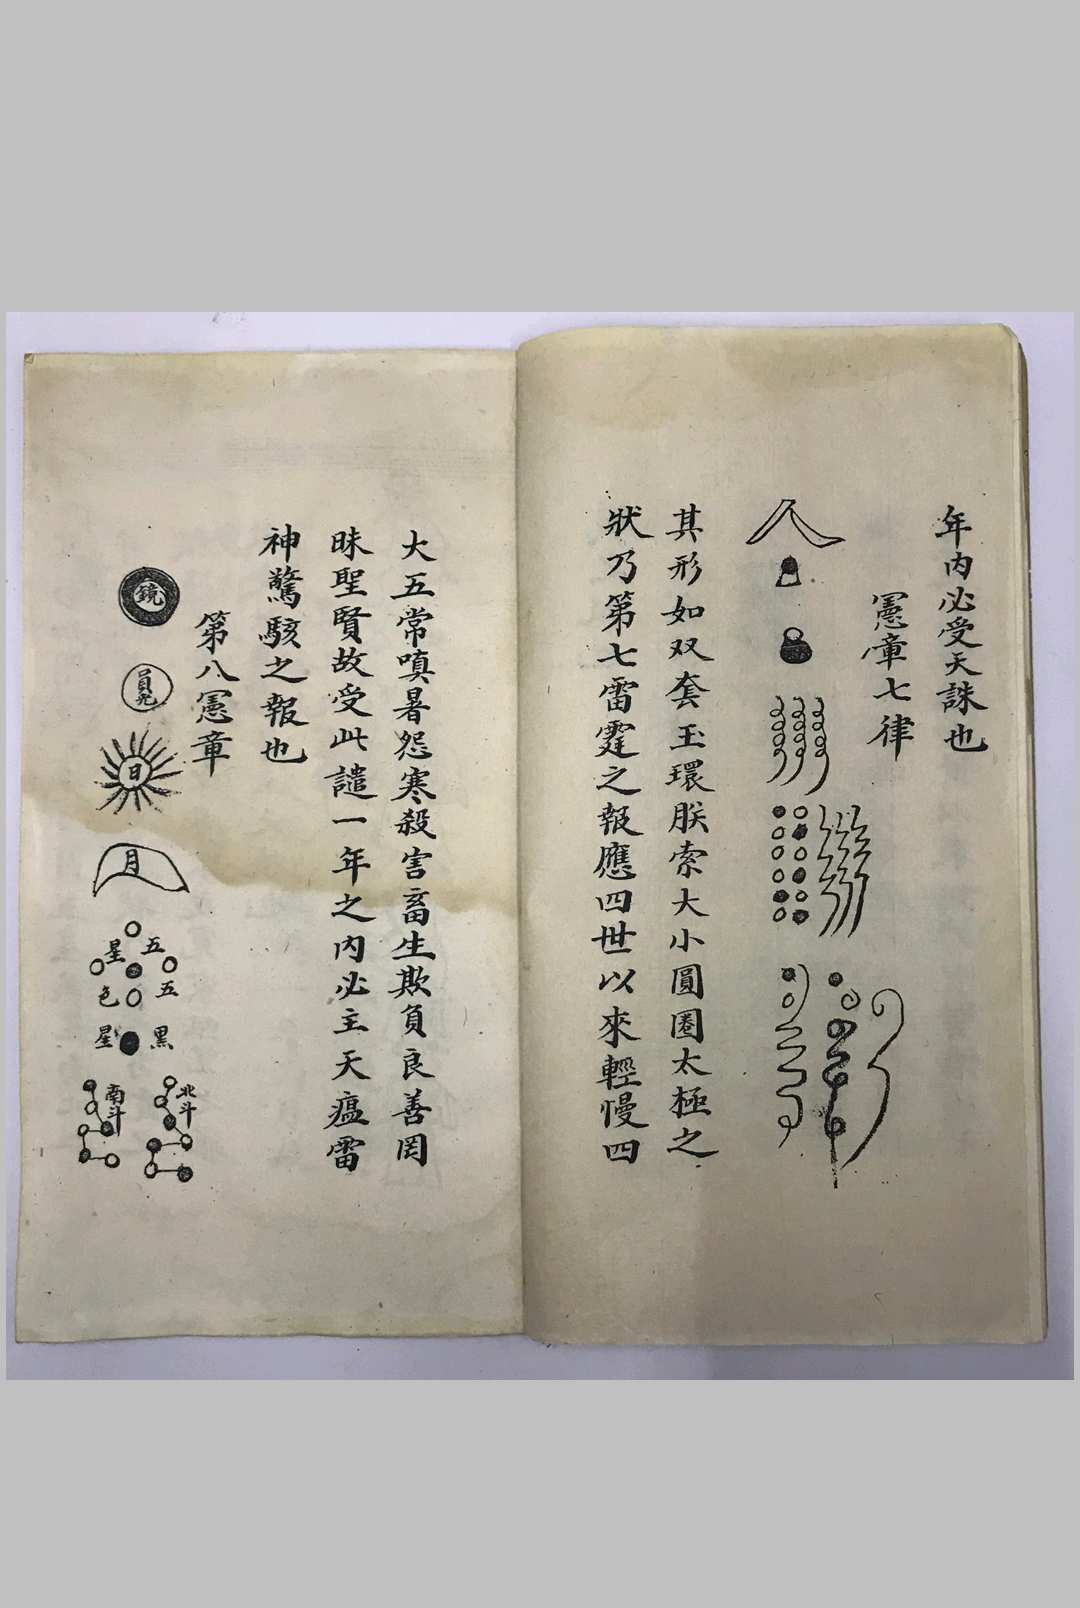 年内必受天誅也
憲章七律
其形如双套玉環朕索大小圓圈太極之
狀乃第七雷霆之報應四世以來輕慢四
大五常嗔暑怨寒殺害畜生欺負良善罔
昧聖賢故受此譴一年之内必主天瘟雷
神驚駭之報也
第八憲章
鏡
日
月
五星
五色
黑星
北斗
南斗